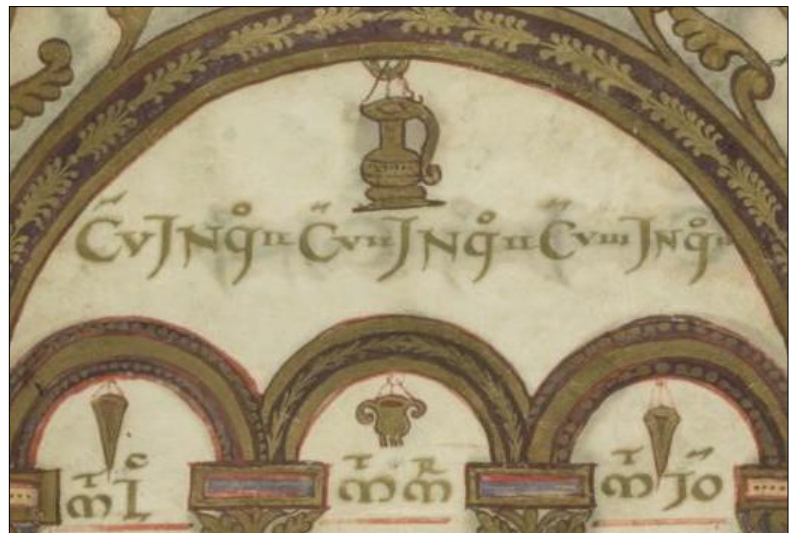 C̃ V JNq̊ II C̃ VII JNq̊ II C̃ VIII JNq̊ II
mᵀ Lᶜ mᵀ mᴿ mᵀ Jõ